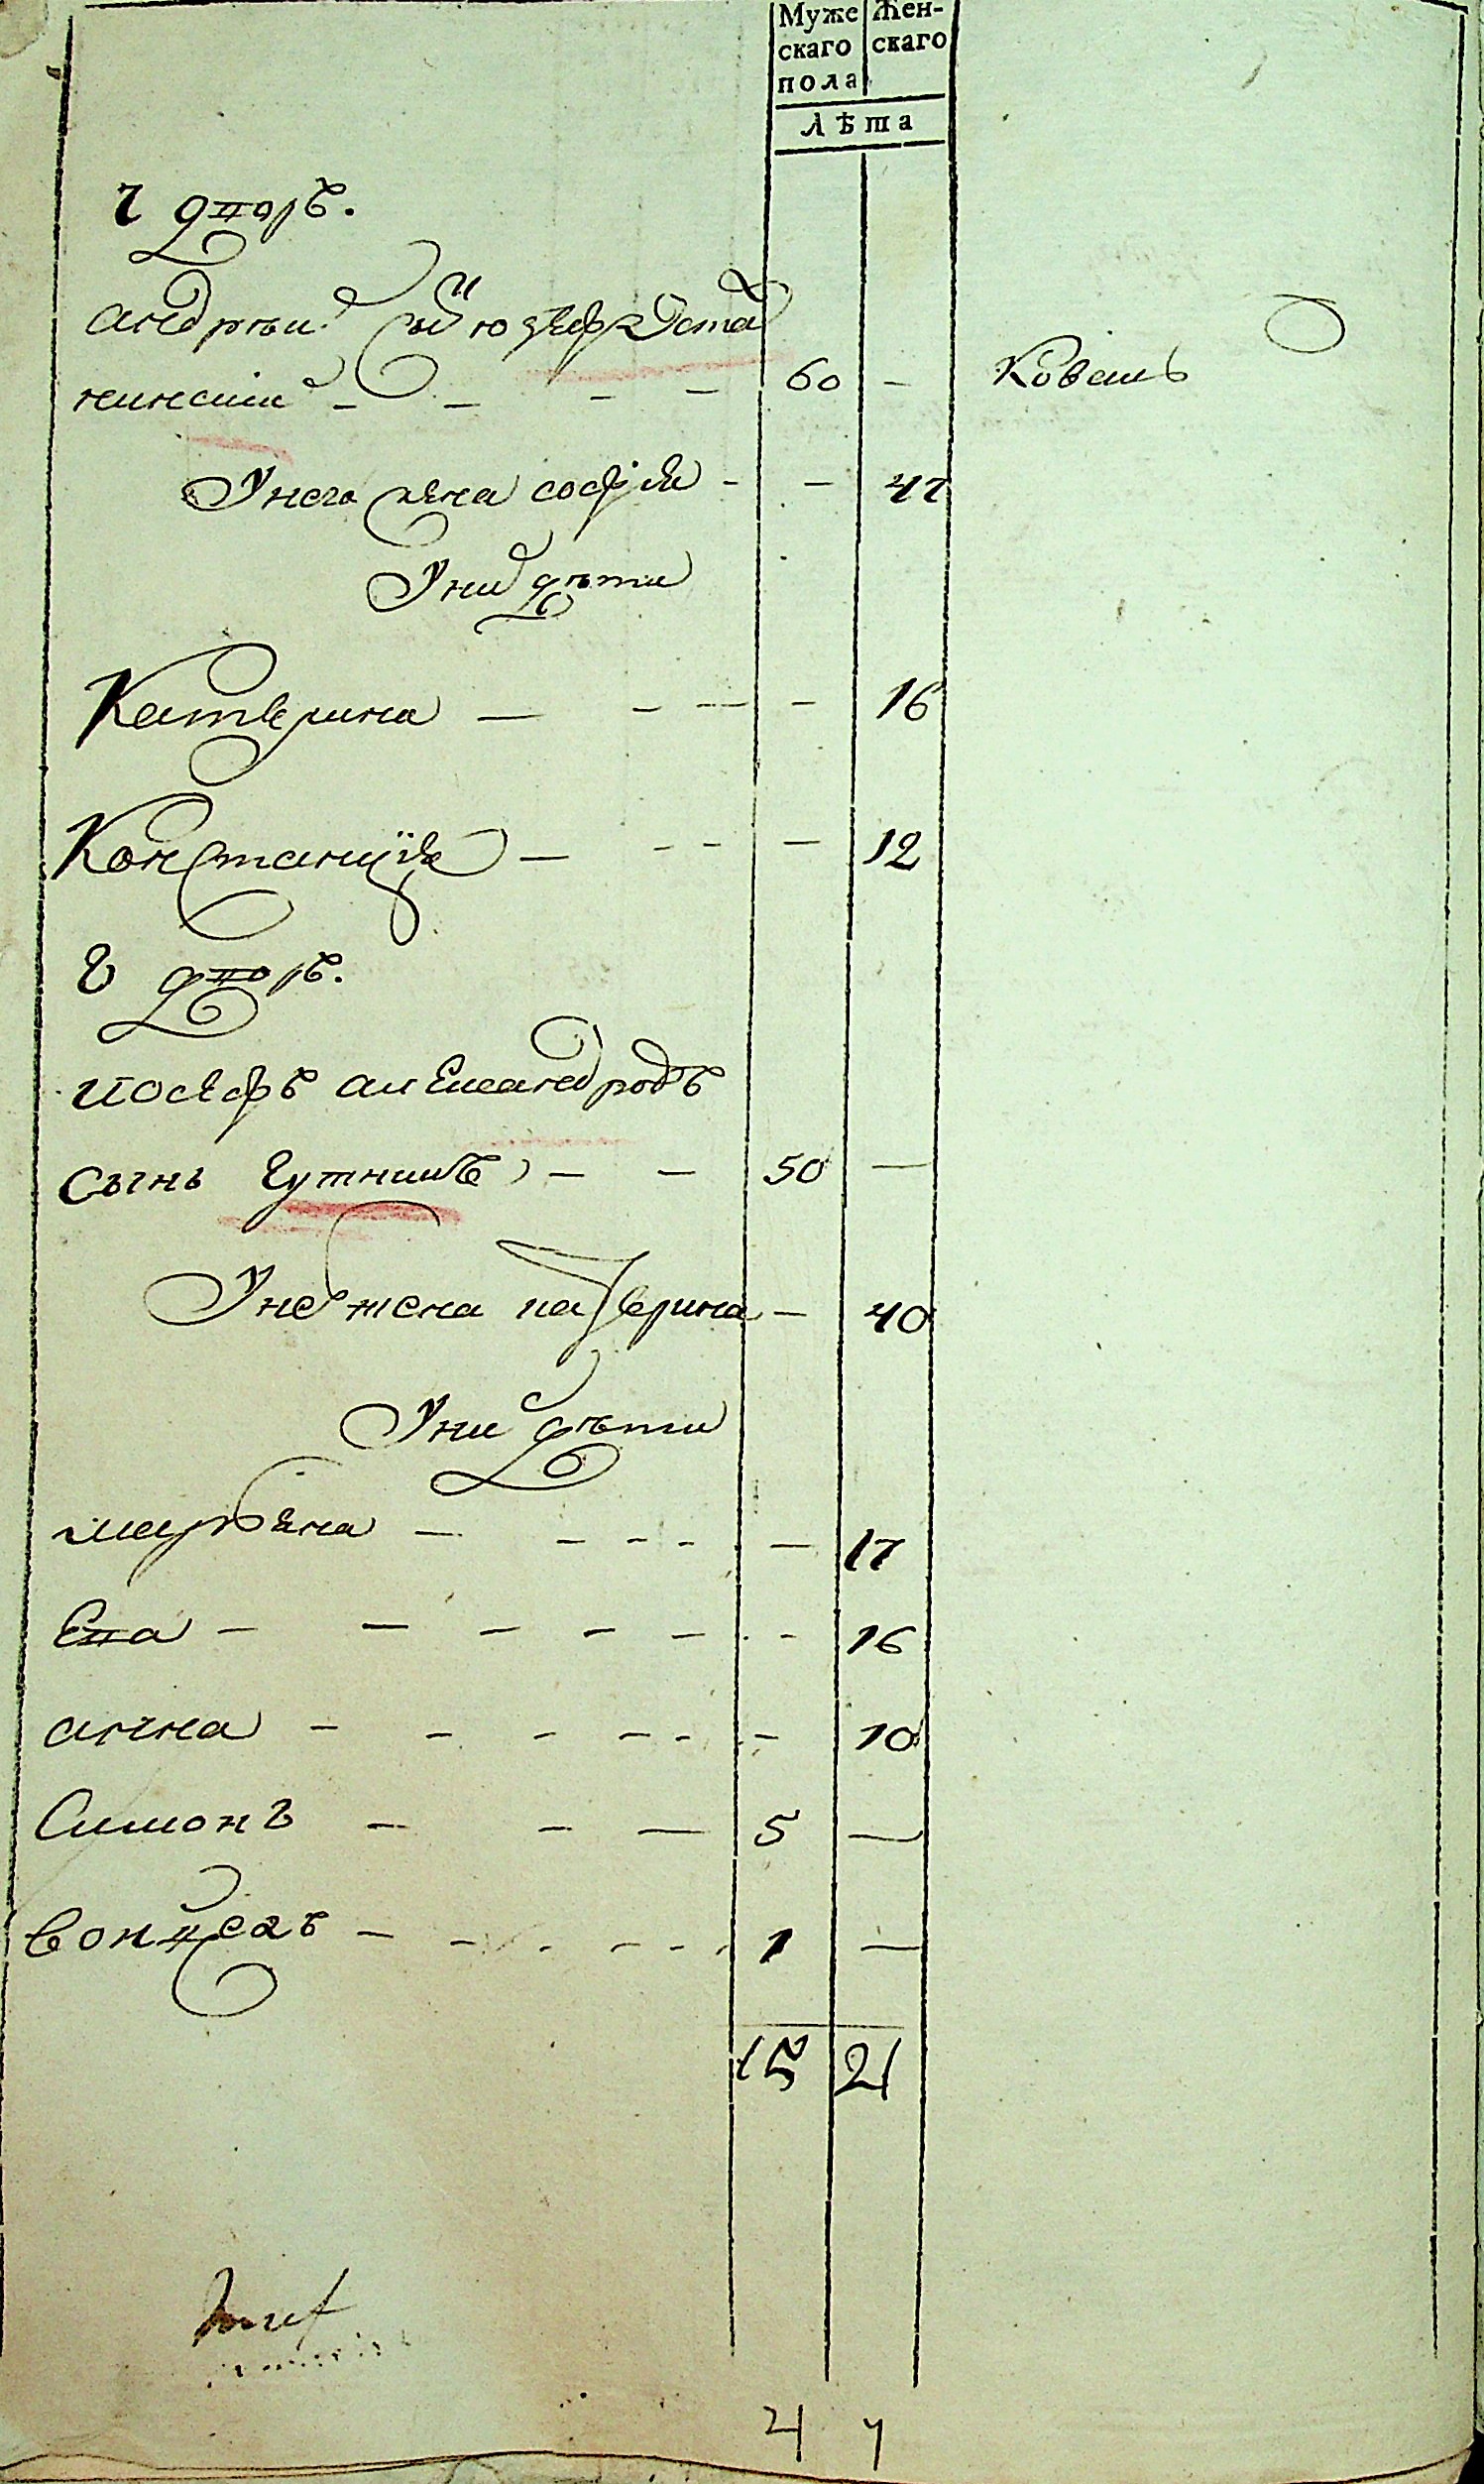 Муже Жен-
скаго скаго
пола
Лѣта
дворъ.
Андрей сын юзефа
60 - Коваль
У него жена софия - - 47
У них дѣти
Катерина - - - - 16
Констанция - - - - 12
8 дворъ.
иосефъ александровъ
сынъ Гутникъ - - 50 -
У нег жена катерина - 40
У них дѣти
марияна - - - - - 17
Ева - - - - - - 16
анна - - - - - - 10
Симонъ - - - 5 -
1 -
15 21
4 7